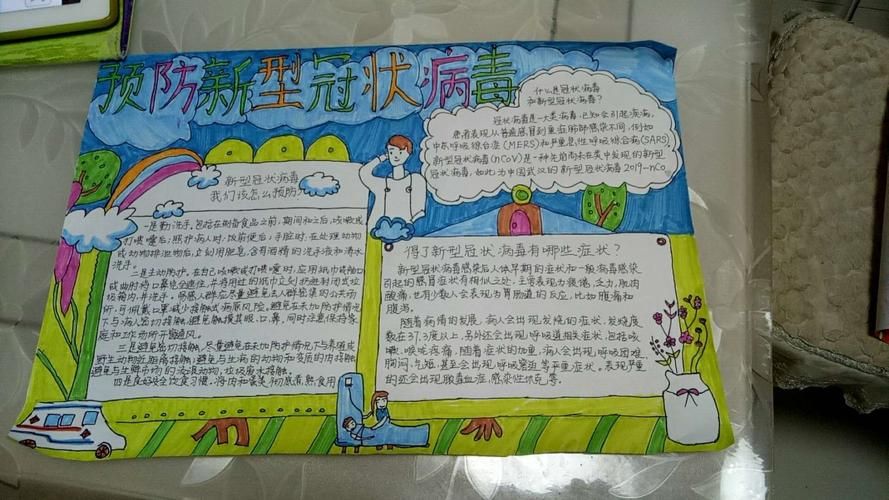 预防新型冠状病毒
什么是冠状病毒
和新型冠状病毒?
冠状病毒是一大类病毒,已知会引起疾病,
患者表现从普通感冒到重症肺部感染不同,例如
中东呼吸综合征(MERS)和严重急性呼吸综合病(SARS)
新型冠状病毒(nCoV)是一种先前尚未在类中发现的新型
冠状病毒,如此为中国武汉的新型冠状病毒2019-nCo
新型冠状病毒
我们该怎么预防
一是勤洗手,包括在制备食品之前,期间和之后,咳嗽或
打喷嚏后;照护病人时,饭前便后;手脏时,在处理动物
或动物排泄物后,立刻用肥皂,含有酒精的洗手液和清水
洗手。
二是主动防护,在自己咳嗽或打喷嚏时,应用纸巾或袖口
或曲肘将口鼻完全遮住,并将用过的纸巾立刻扔进封闭式垃
圾箱内并洗手。易感人群应尽量避免去人群密集的公共场
所,可佩戴口罩减少接触或病原风险,避免在未加防护情况
下与病人密切接触,避免触摸其眼、口、鼻,同时注意保持家
庭和工作场所开窗通风。
三是避免密切接触,尽量避免在未加防护情况下与养殖或
野生动物近距离接触,避免与生病的动物和变质的肉接触
避免与生鲜市场的流浪动物,垃圾废水接触。
四是良好安全饮食习惯,将肉和禽类彻底煮熟食用
得了新型冠状病毒有哪些症状?
新型冠状病毒感染后人体早期的症状和一般病毒感染
引起的感冒症状有相似之处,主要表现为疲倦,乏力,肌肉
酸痛,也有少数人会表现为胃肠道的反应,比如腹痛和
腹泻。
随着病情的发展,病人会出现发烧的症状,发烧度
数在37.3度以上,另外还会出现呼吸道相关症状,包括咳
嗽、喉咙疼痛,随着症状的加重,病人会出现呼吸困难
胸闷,气短,甚至会出现呼吸窘迫等严重症状。表现严重
的还会出现脓毒血症,感染性休克等。